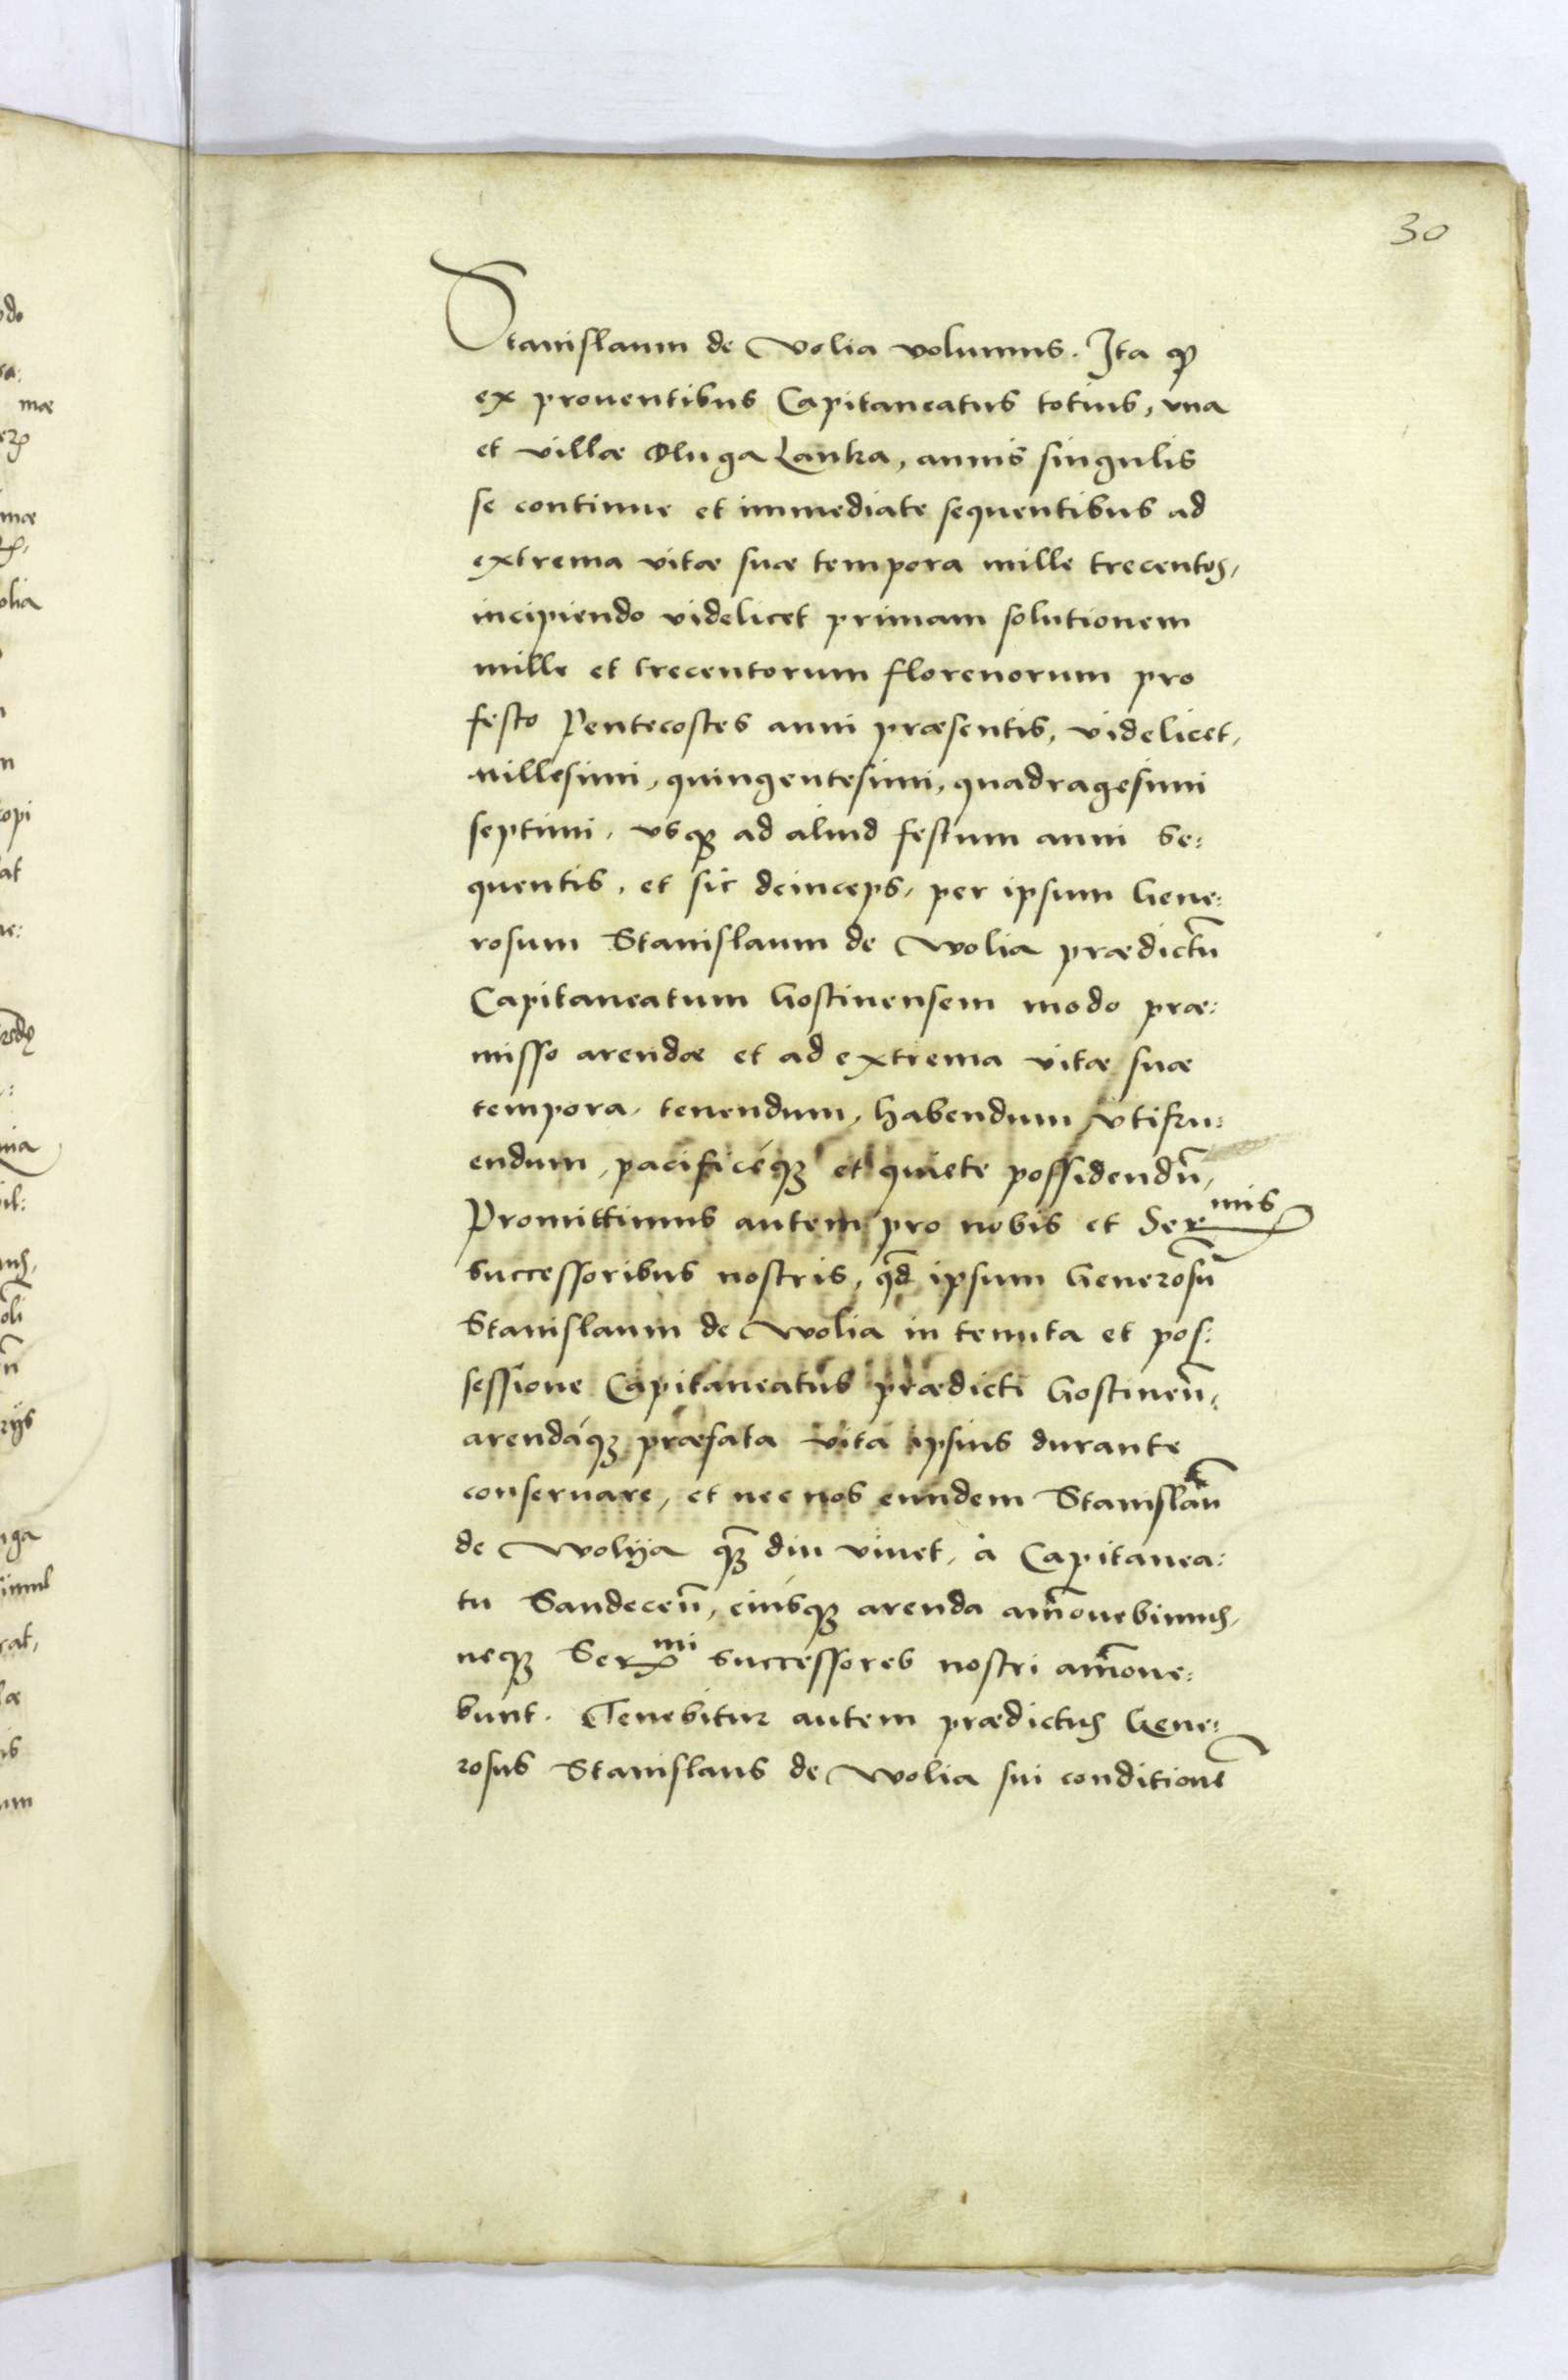 30
Stanislaum de Volia volumus. Ita qꝫ
ex prouentibus Capitaneatus totius, vna
et villæ Dluga Lanka, annis singulis
se continue et immediate sequentibus ad
extrema vitæ suæ tempora mille trecentos,
incipiendo videlicet primam solutionem
mille et trecentorum florenorum pro
festo Pentecostes anni præsentis, videlicet,
millesimi, quingentesimi, quadragesimi
septimi, vsqꝫ ad aliud festum anni se:
quentis, et sic deinceps, per ipsum Gene:
rosum Stanislaum de Wolia prædictũ
Capitaneatum Gostinensem modo præ:
misso arendæ et ad extrema vitæ suæ
tempora, tenendum, habendum vtifru:
endum, pacificéqꝫ et quiete possidendũ,
Promittimus autem pro nobis et Sermis
successoribus nostris, qd̃ ipsum Generosũ
Stanislaum de Wolia in tenuta et pos:
sessione Capitaneatus prædicti Gostineñ,
arendáqꝫ præfata vita ipsius durante
conseruare, et nec nos eundem Stanislaũ
de Wolija qꝫ̃ diu viuet, à Capitanea:
tu Sandeceñ, eiúsqꝫ arenda am̃ouebimus,
neqꝫ Sermi successores nostri am̃oue:
bunt. Tenebitur autem prædictus Gene:
rosus Stanislaus de Wolia sui conditionẽ